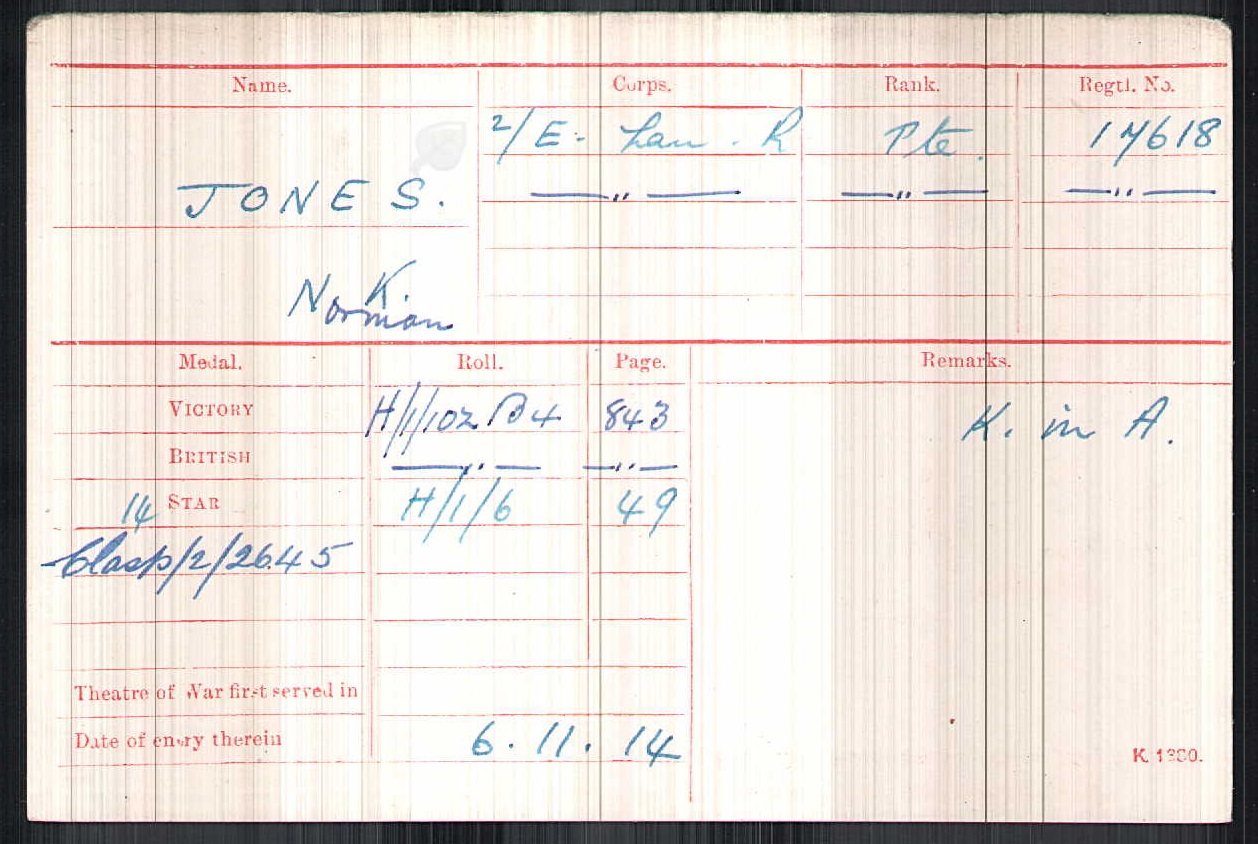 Name. Corps. Rank. Regtl. No.
2/E. Lan. R Pte. 17618
JONES. —„— —„— —„—
K.
Norman
Medal. Roll. Page. Remarks.
VICTORY H/1/102 B4 843 K. in A.
BRITISH —„— —„—
14 STAR H/1/6 49
Clasp/2/2645
Theatre of War first served in
Date of entry therein 6.11.14
K. 1380.